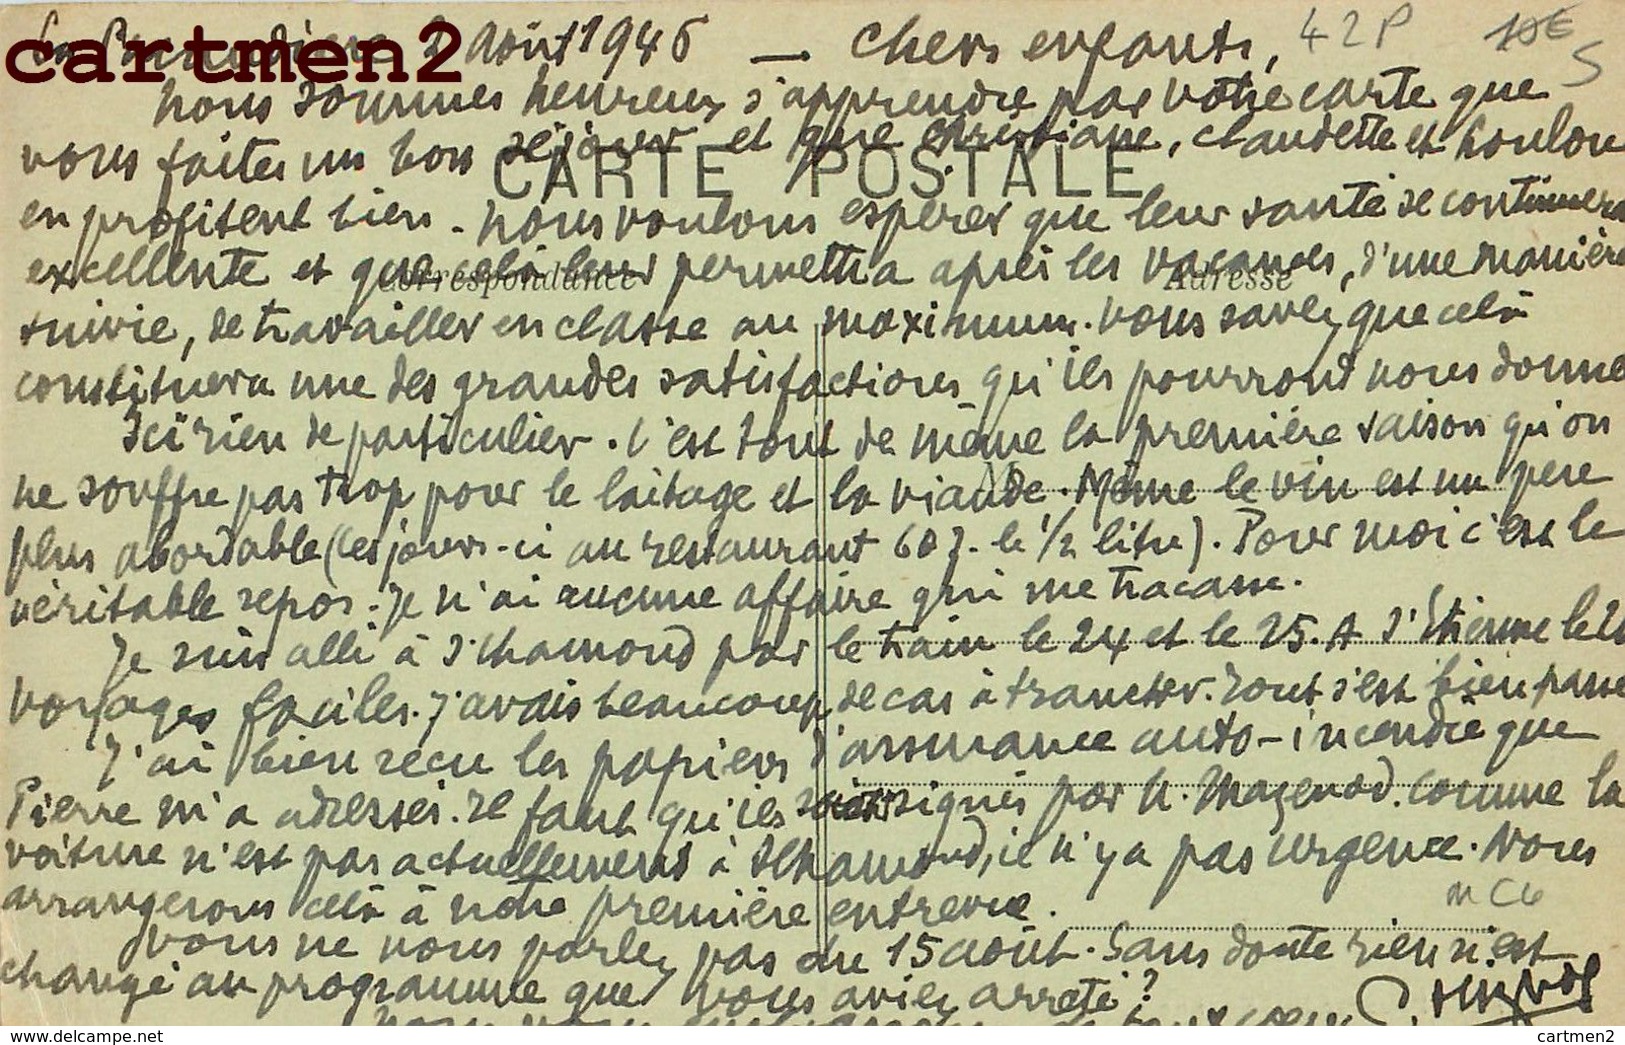 cartmen2
août 1946 — Chers enfants, 42P 10€ S
nous sommes heureux d'apprendre par votre carte que
vous faites un bon séjour et que christiane, claudette et Loulou
CARTE POSTALE
en profitent bien. nous voulons espérer que leur santé se continuera
excellente et que celà leur permettra après les vacances, d'une manière
Correspondance Adresse
suivie, de travailler en classe au maximum. vous savez que celà
constituera une des grandes satisfactions qu'ils pourront nous donne
Ici rien de particulier. C'est tout de même la première saison qu'on
ne souffre pas trop pour le laitage et la viande. Même le vin est un peu
plus abordable (ces jours-ci au restaurant 60f. le 1/2 litre). Pour moi c'est le
véritable repos. je n'ai aucune affaire qui me tracasse.
Je suis allé à St chamond par le train le 24 et le 25. A St Etienne le 2
voyages faciles. J'avais beaucoup de cas à trancher. Tout s'est bien passé
J'ai bien reçu les papiers d'assurance auto-incendie que
Pierre m'a adressés. Il faut qu'ils soient signés par M. Mazenod. Comme la
voiture n'est pas actuellement à St Chamond, il n'y a pas urgence. Nous
arrangerons celà à notre première entrevue. m C6
vous ne nous parlez pas du 15 août. Sans doute rien n'est
changé au programme que vous aviez arrêté ?
cartmen2
www.delcampe.net